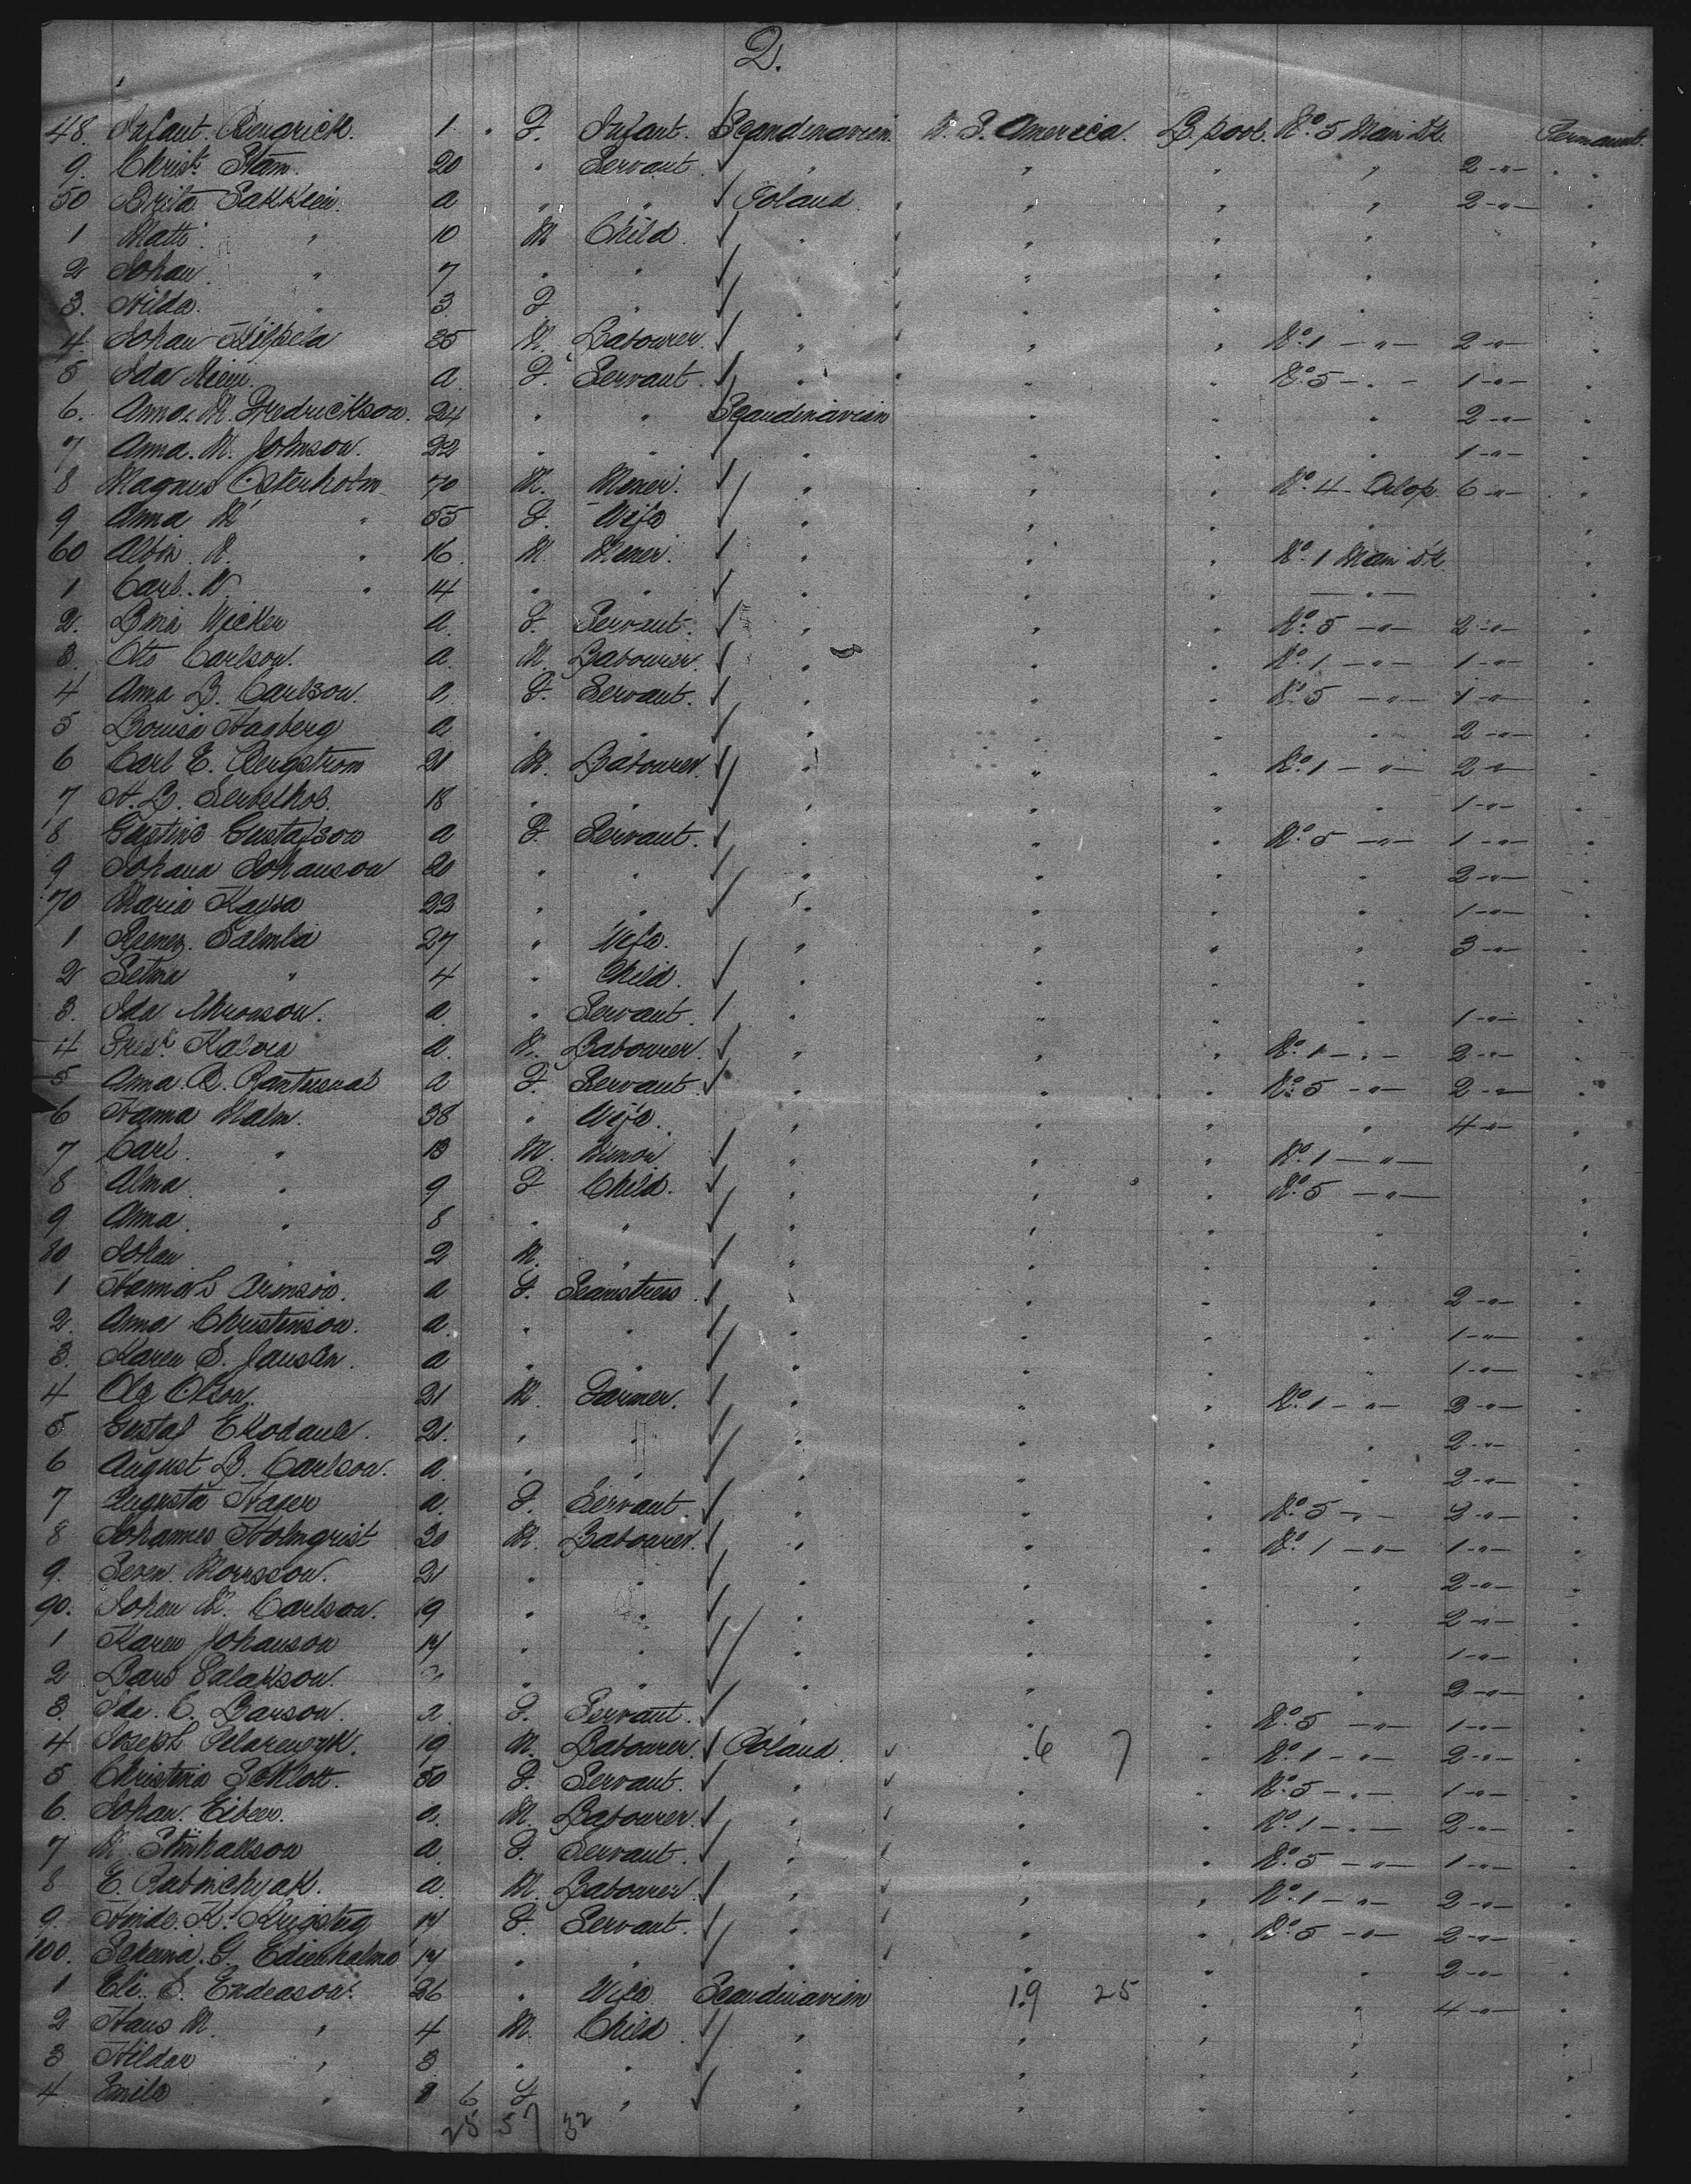 2.
48. Infant Bengrick. 1 F. Infant. Scandinavian. U. S. America. L'pool. No. 5 Main Dk. Permanent.
9. Christ. Stam. 20 " Servant " " " " 2 -"- "
50 Brita Sakkien. a " " Poland. " " " 2 -"- "
1 Matti " 10 M Child. " " " " "
2 Johan " 7 " " " " " " "
3. Hilda. " 3 F. " " " " " "
4. Johan Kilpela 35 M. Labourer. " " " No. 1 -"- 2 -"- "
5 Ida Niemi. a. F. Servant. " " " No. 5 -"- 1 -"- "
6. Anna. M. Fredrickson. 24 " " Scandinavian " " " 2 -"- "
7 Anna. M. Johnson. 22 " " " " " " 1 -"- "
8 Magnus Osterholm 70 M. Miner. " " " No. 4 Orlop. 6 -"- "
9 Anna M " 55 F. Wife " " " " "
60 Albin. M. " 16 M. Miner. " " " No. 1 Main Dk. "
1 Carl. W. " 14 " " " " " -"- "
2. Lina Wicken a. F. Servant. " " " No. 5 -"- 2 -"- "
3. Oto Carlson. a. M. Labourer. " " " No. 1 -"- 1 -"- "
4 Anna L. Carlson. a. F. Servant. " " " No. 5 -"- 1 -"- "
5 Lovisa Hagberg a " " " " " " 2 -"- "
6 Carl E. Bergstrom 21 M. Labourer. " " " No. 1 -"- 2 -"- "
7 18 " " " " " " 1 -"- "
8 Gustafson a F. Servant. " " " No. 5 -"- 1 -"- "
9 Johana Johanson 20 " " " " " " 2 -"- "
70 Maria Kaysa 22 " " " " " " 1 -"- "
1 Salmla 27 " Wife. " " " " 3 -"- "
2 Selma " 4 " Child. " " " " "
3. Ida a. " Servant. " " " " 1 -"- "
4 Fredk. Kalvia a. M. Labourer. " " " No. 1 -"- 2 -"- "
5 Anna. a F. Servant. " " " No. 5 -"- 2 -"- "
6 Hanna Malm. 38 " Wife. " " " " 4 -"- "
7 Carl. " 13 M. " " " No. 1 -"- "
8 Alma. " 9 F Child. " " " No. 5 -"- "
9 Anna. " 8 " " " " " " "
80 Johan " 2 M. " " " " " "
1 Hanna S Aronson. a F. Seamstress " " " " 2 -"- "
2. Anna Christenson. a. " " " " " " 1 -"- "
3. Karen S. Jansen. a " " " " " " 1 -"- "
4 Ola Olson. 21 M. Farmer. " " " No. 1 -"- 2 -"- "
5 Gustaf Ekodaule. 21. " " " " " " 2 -"- "
6 August L. Carlson. a. " " " " " " 2 -"- "
7 Augusta Hagen a. F. Servant. " " " No. 5 -"- 2 -"- "
8 Johannes Holmqrist 20 M. Labourer. " " " No. 1 -"- 1 -"- "
9. Seven Morrsson. 21 " " " " " " 2 -"- "
90. Johan M. Carlson. 19 " " " " " " 2 -"- "
1 Karen Johanson 17 " " " " " " 1 -"- "
2 Lars " " " " " " 2 -"- "
3. Ida. C. Larson. a. F. Servant. " " " No. 5 -"- 1 -"- "
4 Joseph Pelarenzyk. 19 M. Labourer. Poland. " 6 7 " No. 1 -"- 2 -"- "
5 Christina Schlott. 50 F. Servant. " " " No. 5 -"- 1 -"- "
6. Johan. Eiben. a. M. Labourer. " " " No. 1 -"- 2 -"- "
7 M. a. F. Servant. " " " No. 5 -"- 1 -"- "
8 E. Rabinchyak. a. M. Labourer. " " " No. 1 -"- 2 -"- "
9. K. 17 F. Servant. " " " No. 5 -"- 2 -"- "
100. G. 17 " " " " " " 2 -"- "
1 Eli. S. Endeason. 26 " Wife Scandinavian 19 25 " " 4 -"- "
2 Hans M. " 4 M. Child " " " " "
3 Hildar " 3 " " " " " " "
4 Emile " 1 6 F " " " " " "
25 57 32